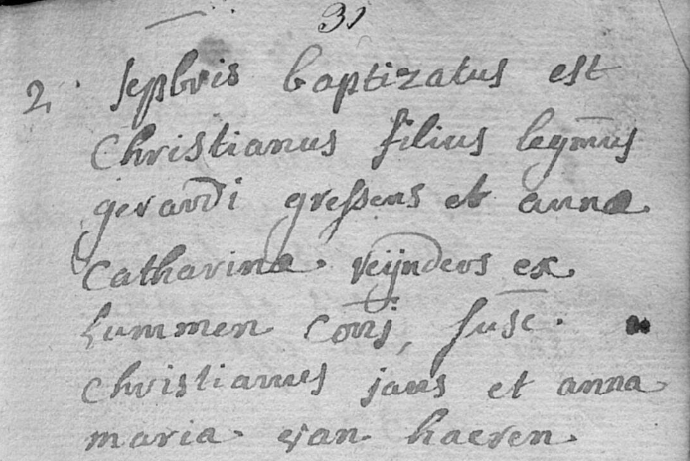 31
2. Sepbris baptizatus est
Christianus filius legmus
gerardi gressens et annæ
Catharinæ reijnders ex
Lummen conj, susc.
Christianus jans et anna
maria van haeren